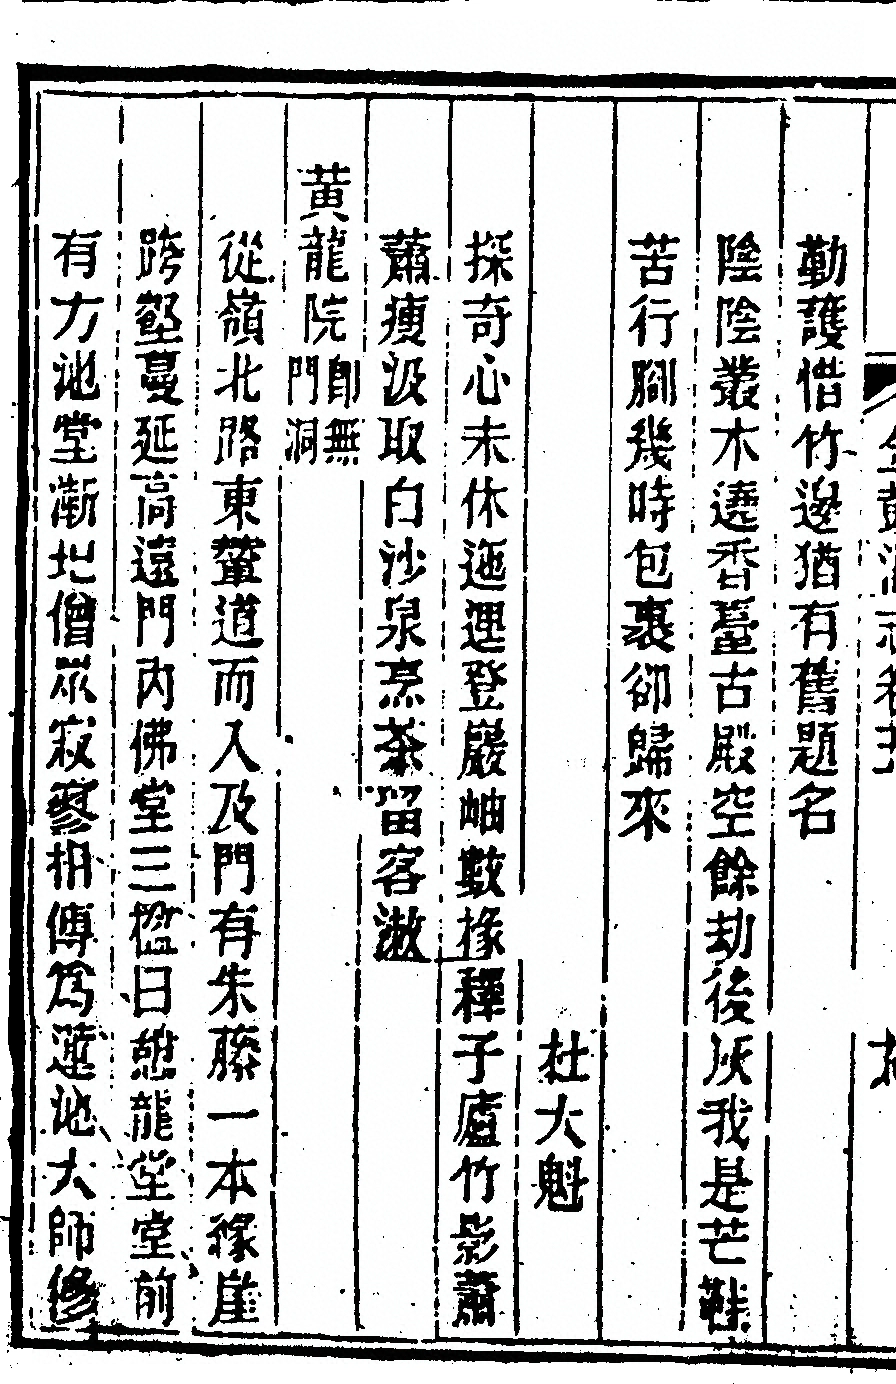 勒護惜竹邊猶有舊題名
陰陰叢木遶香臺古殿空餘劫後灰我是芒鞵
苦行腳幾時包裹卻歸來
杜大魁
探奇心未休迤邐登巖岫數椽釋子廬竹影蕭
蕭瘦汲取白沙泉烹茶留客漱
黃龍院卽無門洞
從嶺北路東輦道而入及門有朱藤一本緣崖
跨壑蔓延高遠門內佛堂三楹曰憩龍堂堂前
有方池堂漸圮僧眾寂寥相傳爲蓮池大師修